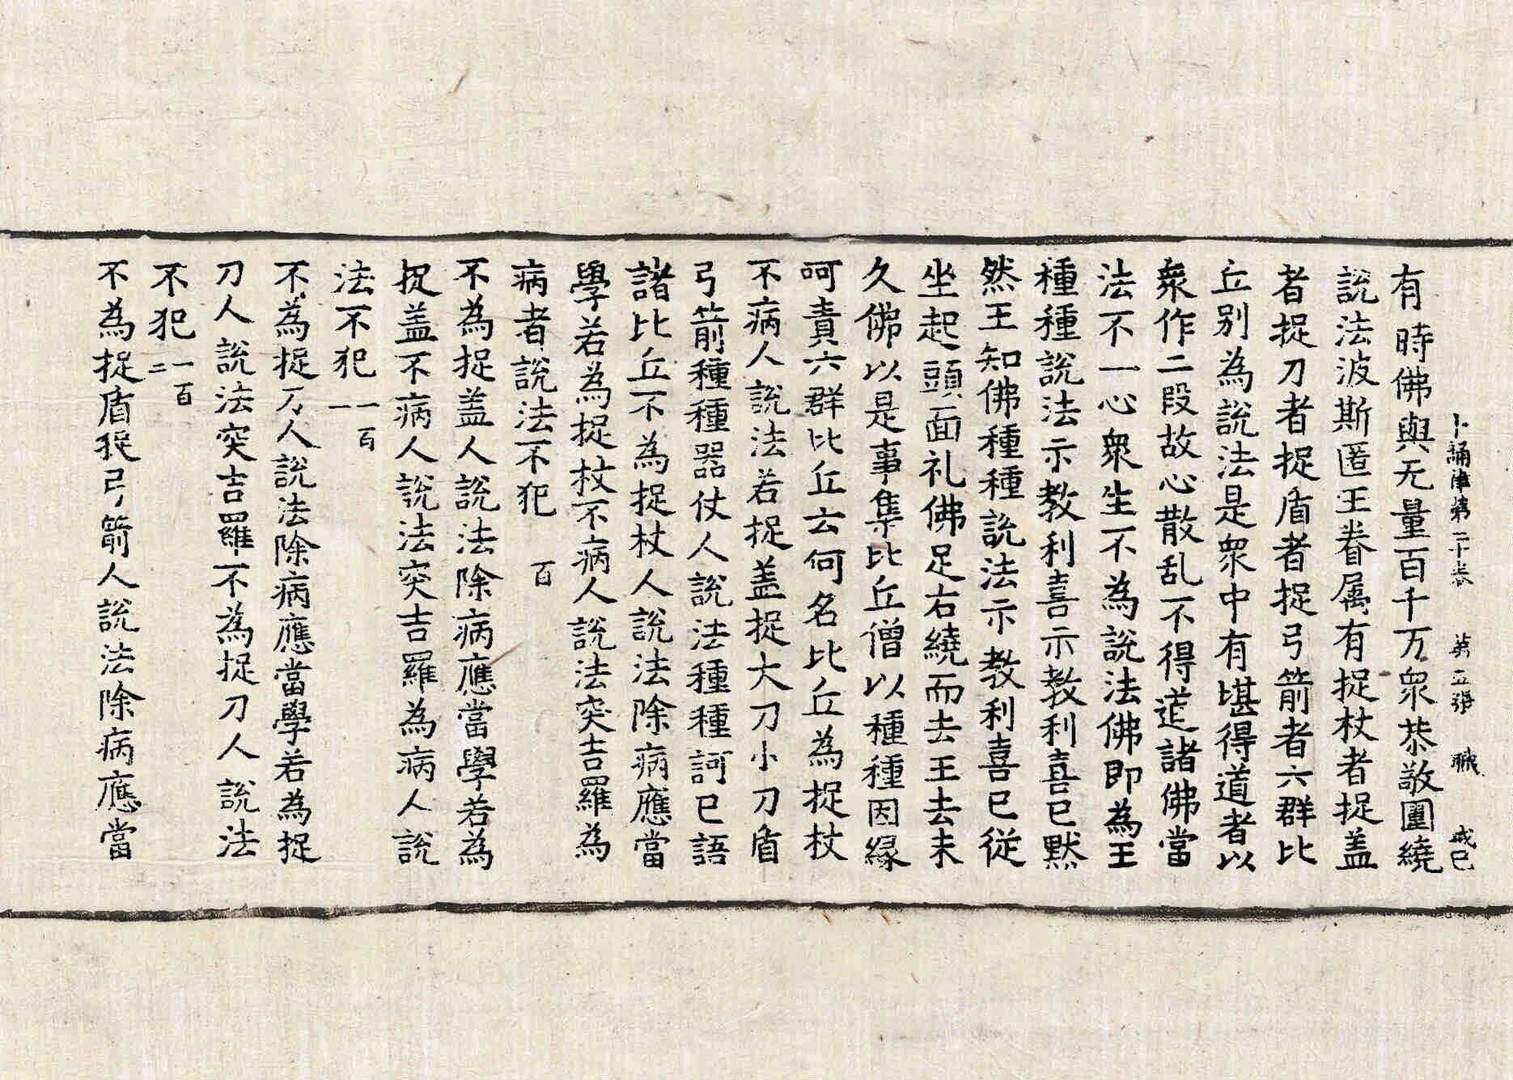 十誦律第二十卷　第五張　職　戒已
有時佛與无量百千万衆恭敬圍繞
說法波斯匿王眷属有捉杖者捉盖
者捉刀者捉盾者捉弓箭者六群比
丘別為說法是衆中有堪得道者以
衆作二段故心散乱不得道諸佛當
法不一心衆生不為說法佛即為王
種種說法示教利喜示教利喜已默
然王知佛種種說法示教利喜已従
坐起頭面礼佛足右繞而去王去未
久佛以是事集比丘僧以種種因縁
呵責六群比丘云何名比丘為捉杖
不病人說法若捉盖捉大刀小刀盾
弓箭種種器仗人說法種種訶已語
諸比丘不為捉杖人說法除病應當
學若為捉杖不病人說法突吉羅為
病者說法不犯　百
不為捉盖人說法除病應當學若為
捉盖不病人說法突吉羅為病人說
法不犯一百一
不為捉刀人說法除病應當學若為捉
刀人說法突吉羅不為捉刀人說法
不犯一百二
不為捉盾捉弓箭人說法除病應當